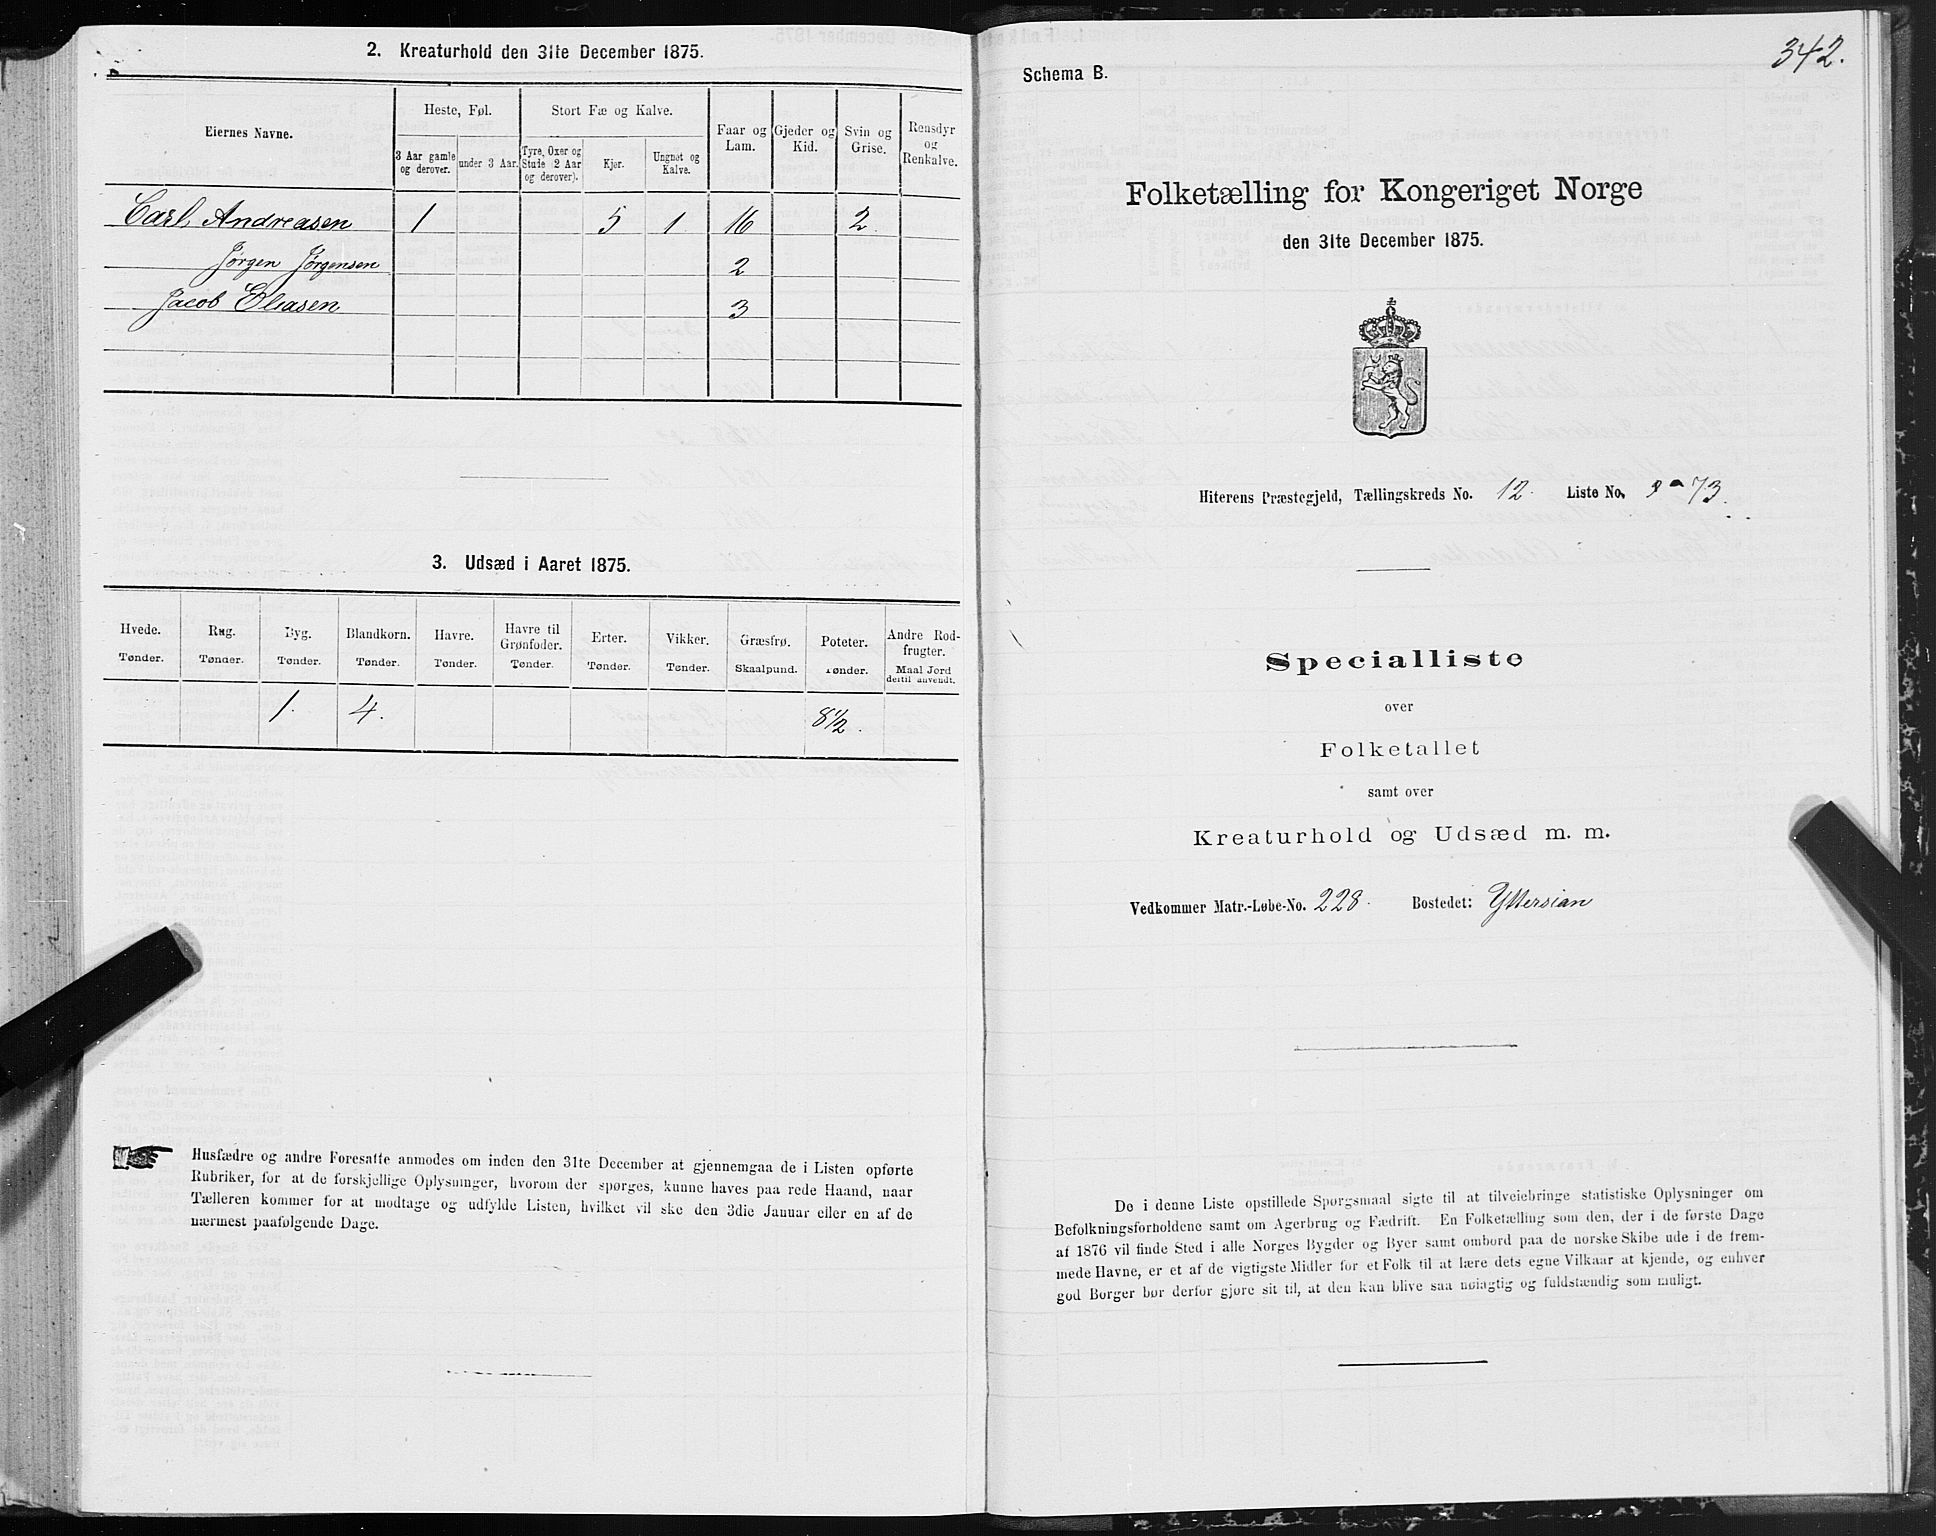 2. Kreaturhold den 31te December 1875.
Eiernes Navne.
Heste, Føl.
Stort Fæ og Kalve.
Faar og Lam.
Gjeder og Kid.
Svin og Grise.
Rensdyr og Renkalve.
3 Aar gamle og derover.
under 3 Aar.
Tyre, Oxer og Stude (2 Aar og derover).
Kjør.
Ungnøt og Kalve.
Carl Andreasen 1 5 1 16 2
Jørgen Jørgensen 2
Jacob Eliasen 3
3. Udsæd i Aaret 1875.
Hvede. Rug. Byg. Blandkorn. Havre. Havre til Grønfoder. Erter. Vikker. Græsfrø. Poteter. Andre Rodfrugter.
Tønder. Tønder. Tønder. Tønder. Tønder. Tønder. Tønder. Tønder. Skaalpund. Tønder. Maal Jord dertil anvendt.
1. 4. 8 1/2.
Husfædre og andre Foresatte anmodes om inden den 31te December at gjennemgaa de i Listen opførte
Rubriker, for at de forskjellige Oplysninger, hvorom der spørges, kunne haves paa rede Haand, naar
Tælleren kommer for at modtage og udfylde Listen, hvilket vil ske den 3die Januar eller en af de
nærmest paafølgende Dage.
342.
Schema B.
Folketælling for Kongeriget Norge
den 31te December 1875.
Hiterens Præstegjeld, Tællingskreds No. 12. Liste No. 73.
Specialliste
over
Folketallet
samt over
Kreaturhold og Udsæd m. m.
Vedkommer Matr.-Løbe-No. 228. Bostedet: Yttersian
De i denne Liste opstillede Spørgsmaal sigte til at tilveiebringe statistiske Oplysninger om
Befolkningsforholdene samt om Agerbrug og Fædrift. En Folketælling som den, der i de første Dage
af 1876 vil finde Sted i alle Norges Bygder og Byer samt ombord paa de norske Skibe ude i de frem-
mede Havne, er et af de vigtigste Midler for et Folk til at lære dets egne Vilkaar at kjende, og enhver
god Borger bør derfor gjøre sit til, at den kan blive saa nøiagtig og fuldstændig som muligt.